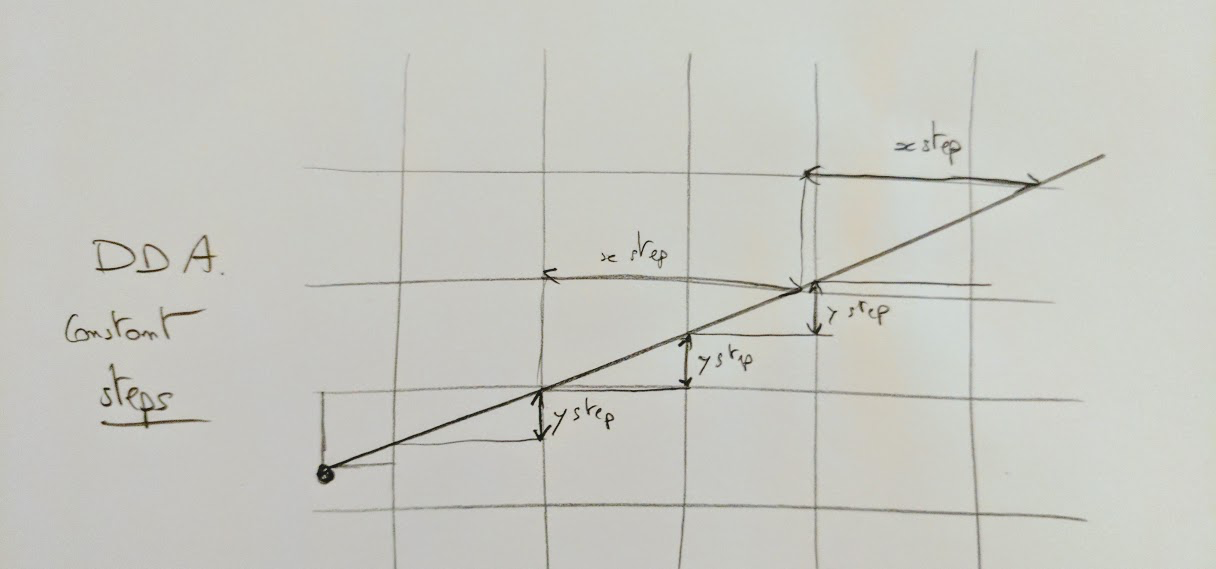 DDA.
Constant
steps
x step
x step
y step
y step
y step